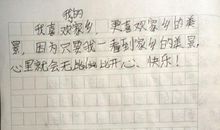 我的
我喜欢家乡,更喜欢家乡的美
景,因为只要我一看到家乡的美景,
心里就会无比的比开心、快乐!